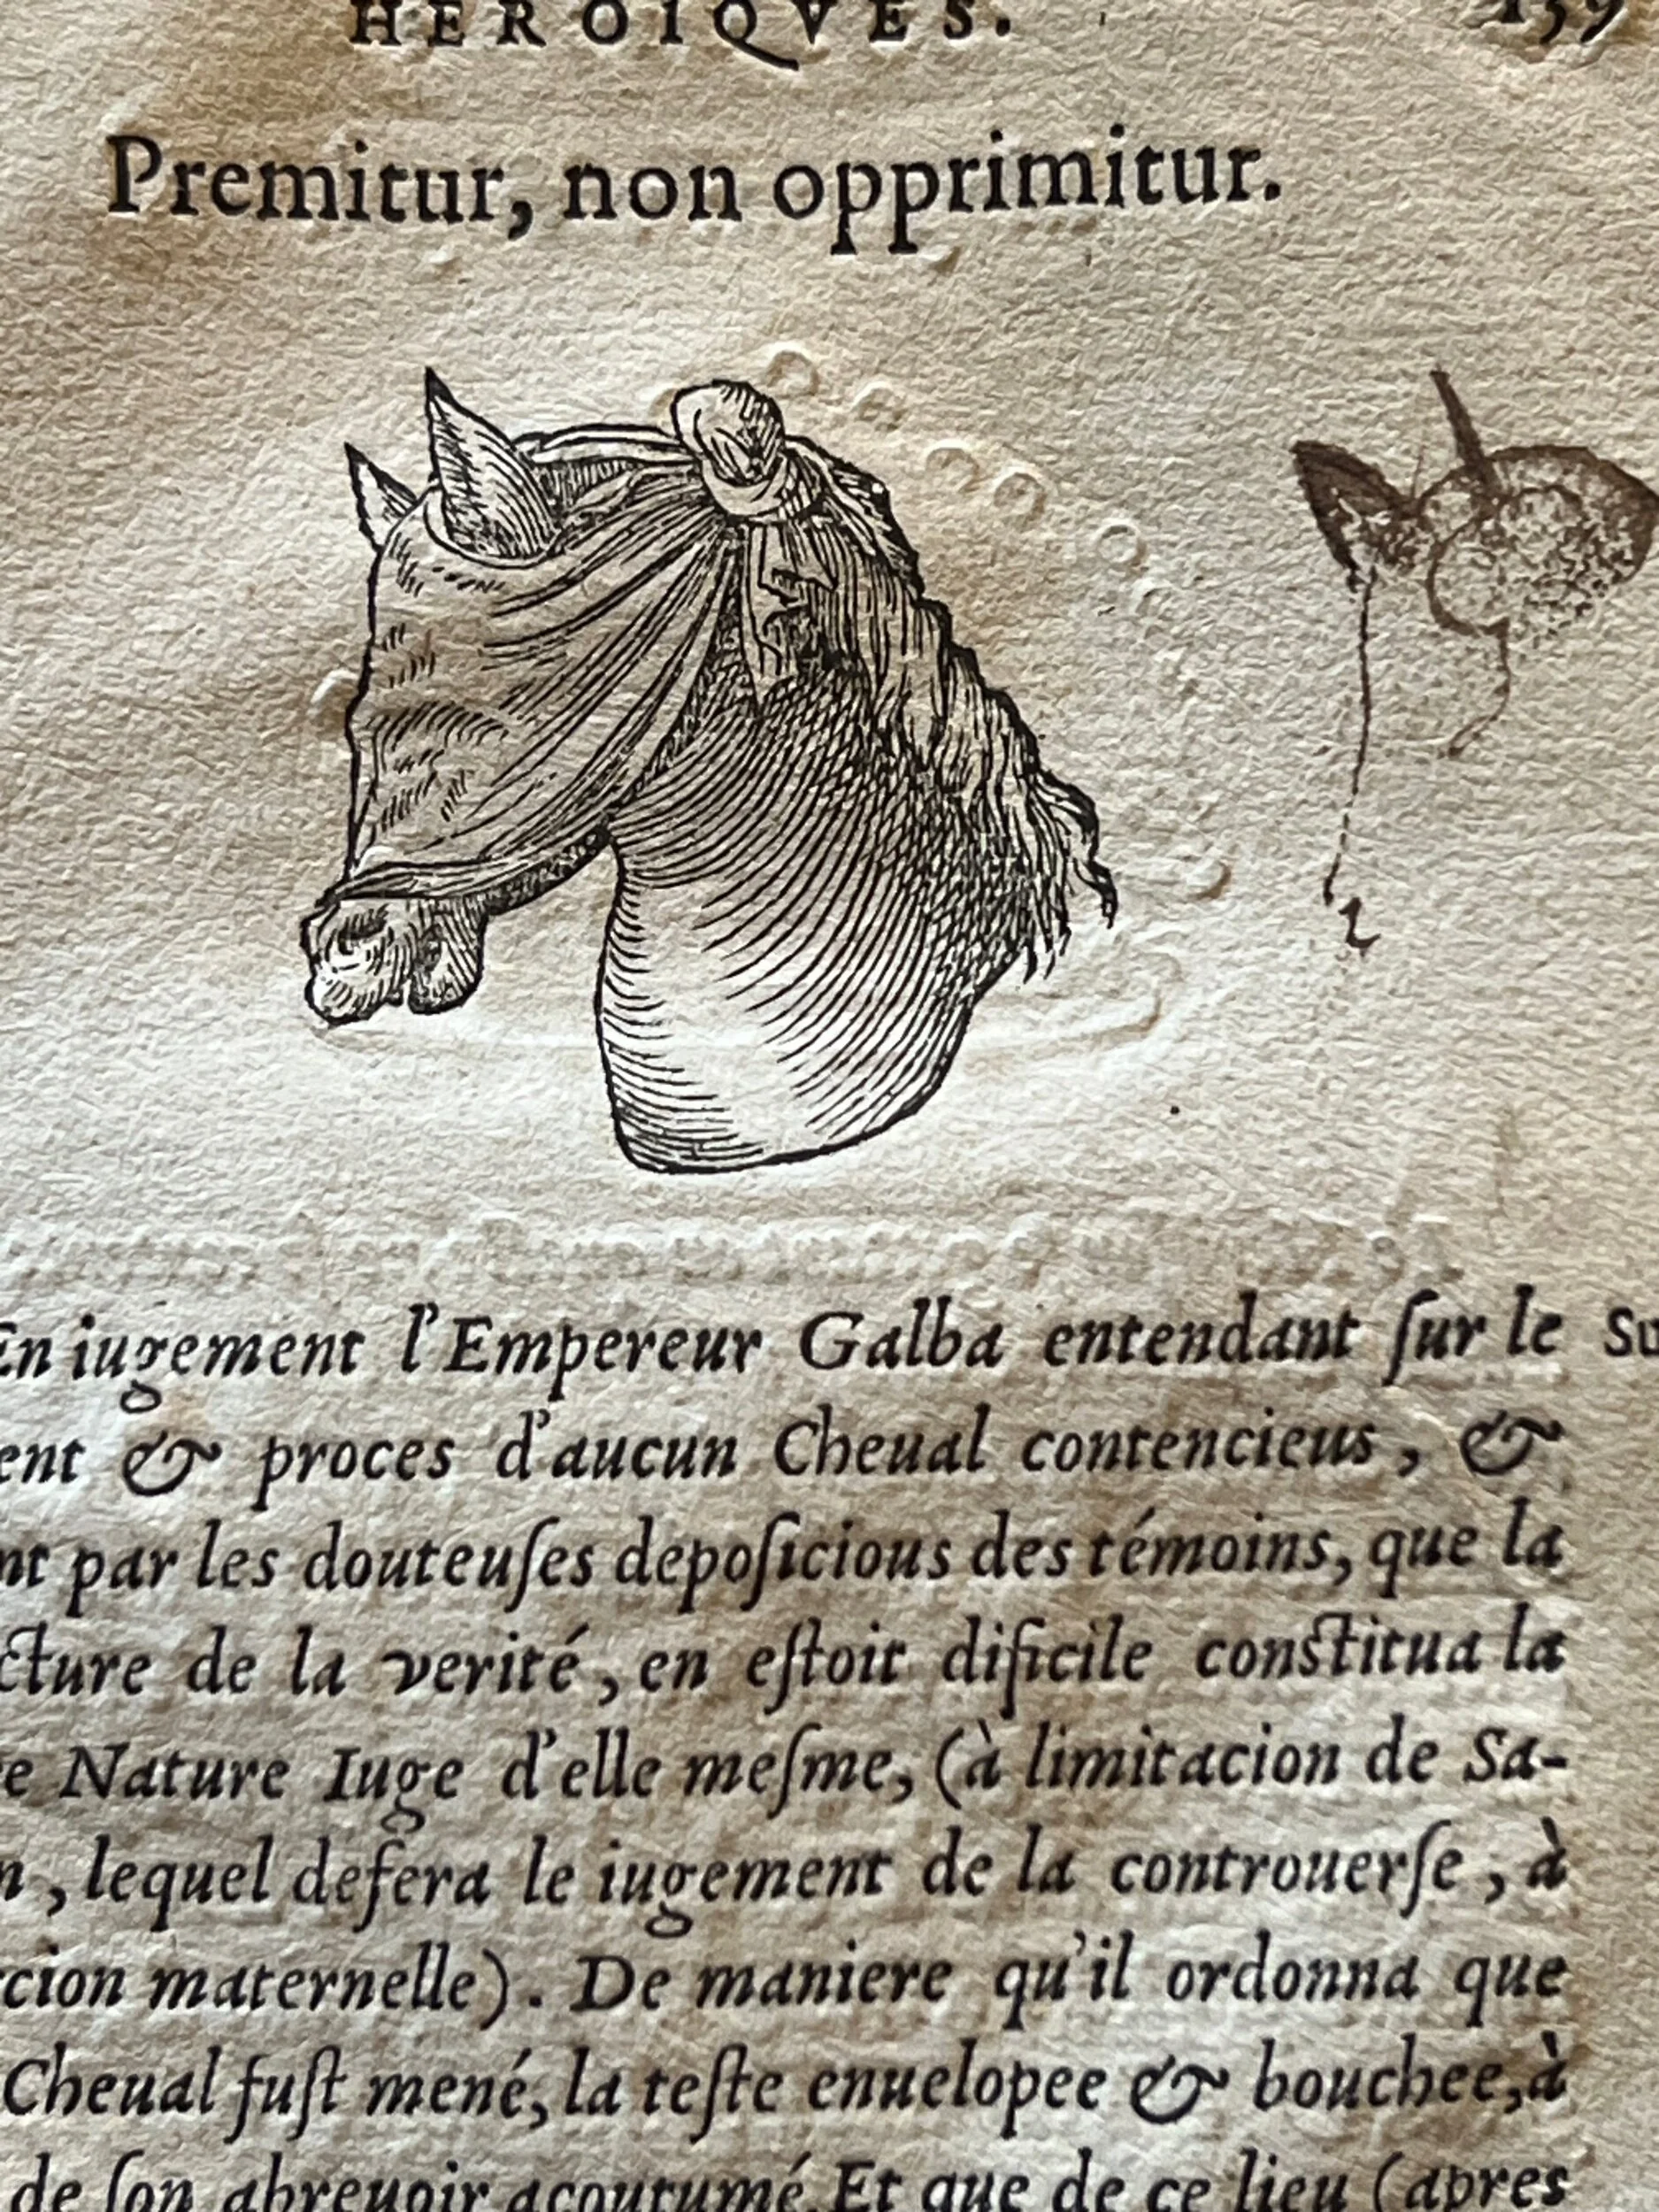 HEROIQVES. 159
Premitur, non opprimitur.
En iugement l'Empereur Galba entendant ſur le
& proces d'aucun Cheual contencieus, &
par les douteuſes depoſicious des témoins, que la
de la verité, en eſtoit dificile conſtitua la
Nature Iuge d'elle meſme, (à limitacion de Sa-
, lequel defera le iugement de la controuerſe, à
maternelle). De maniere qu'il ordonna que
Cheual fuſt mené, la teſte enuelopee & bouchee, à
de ſon abreuoir acoutumé. Et que de ce lieu (apres